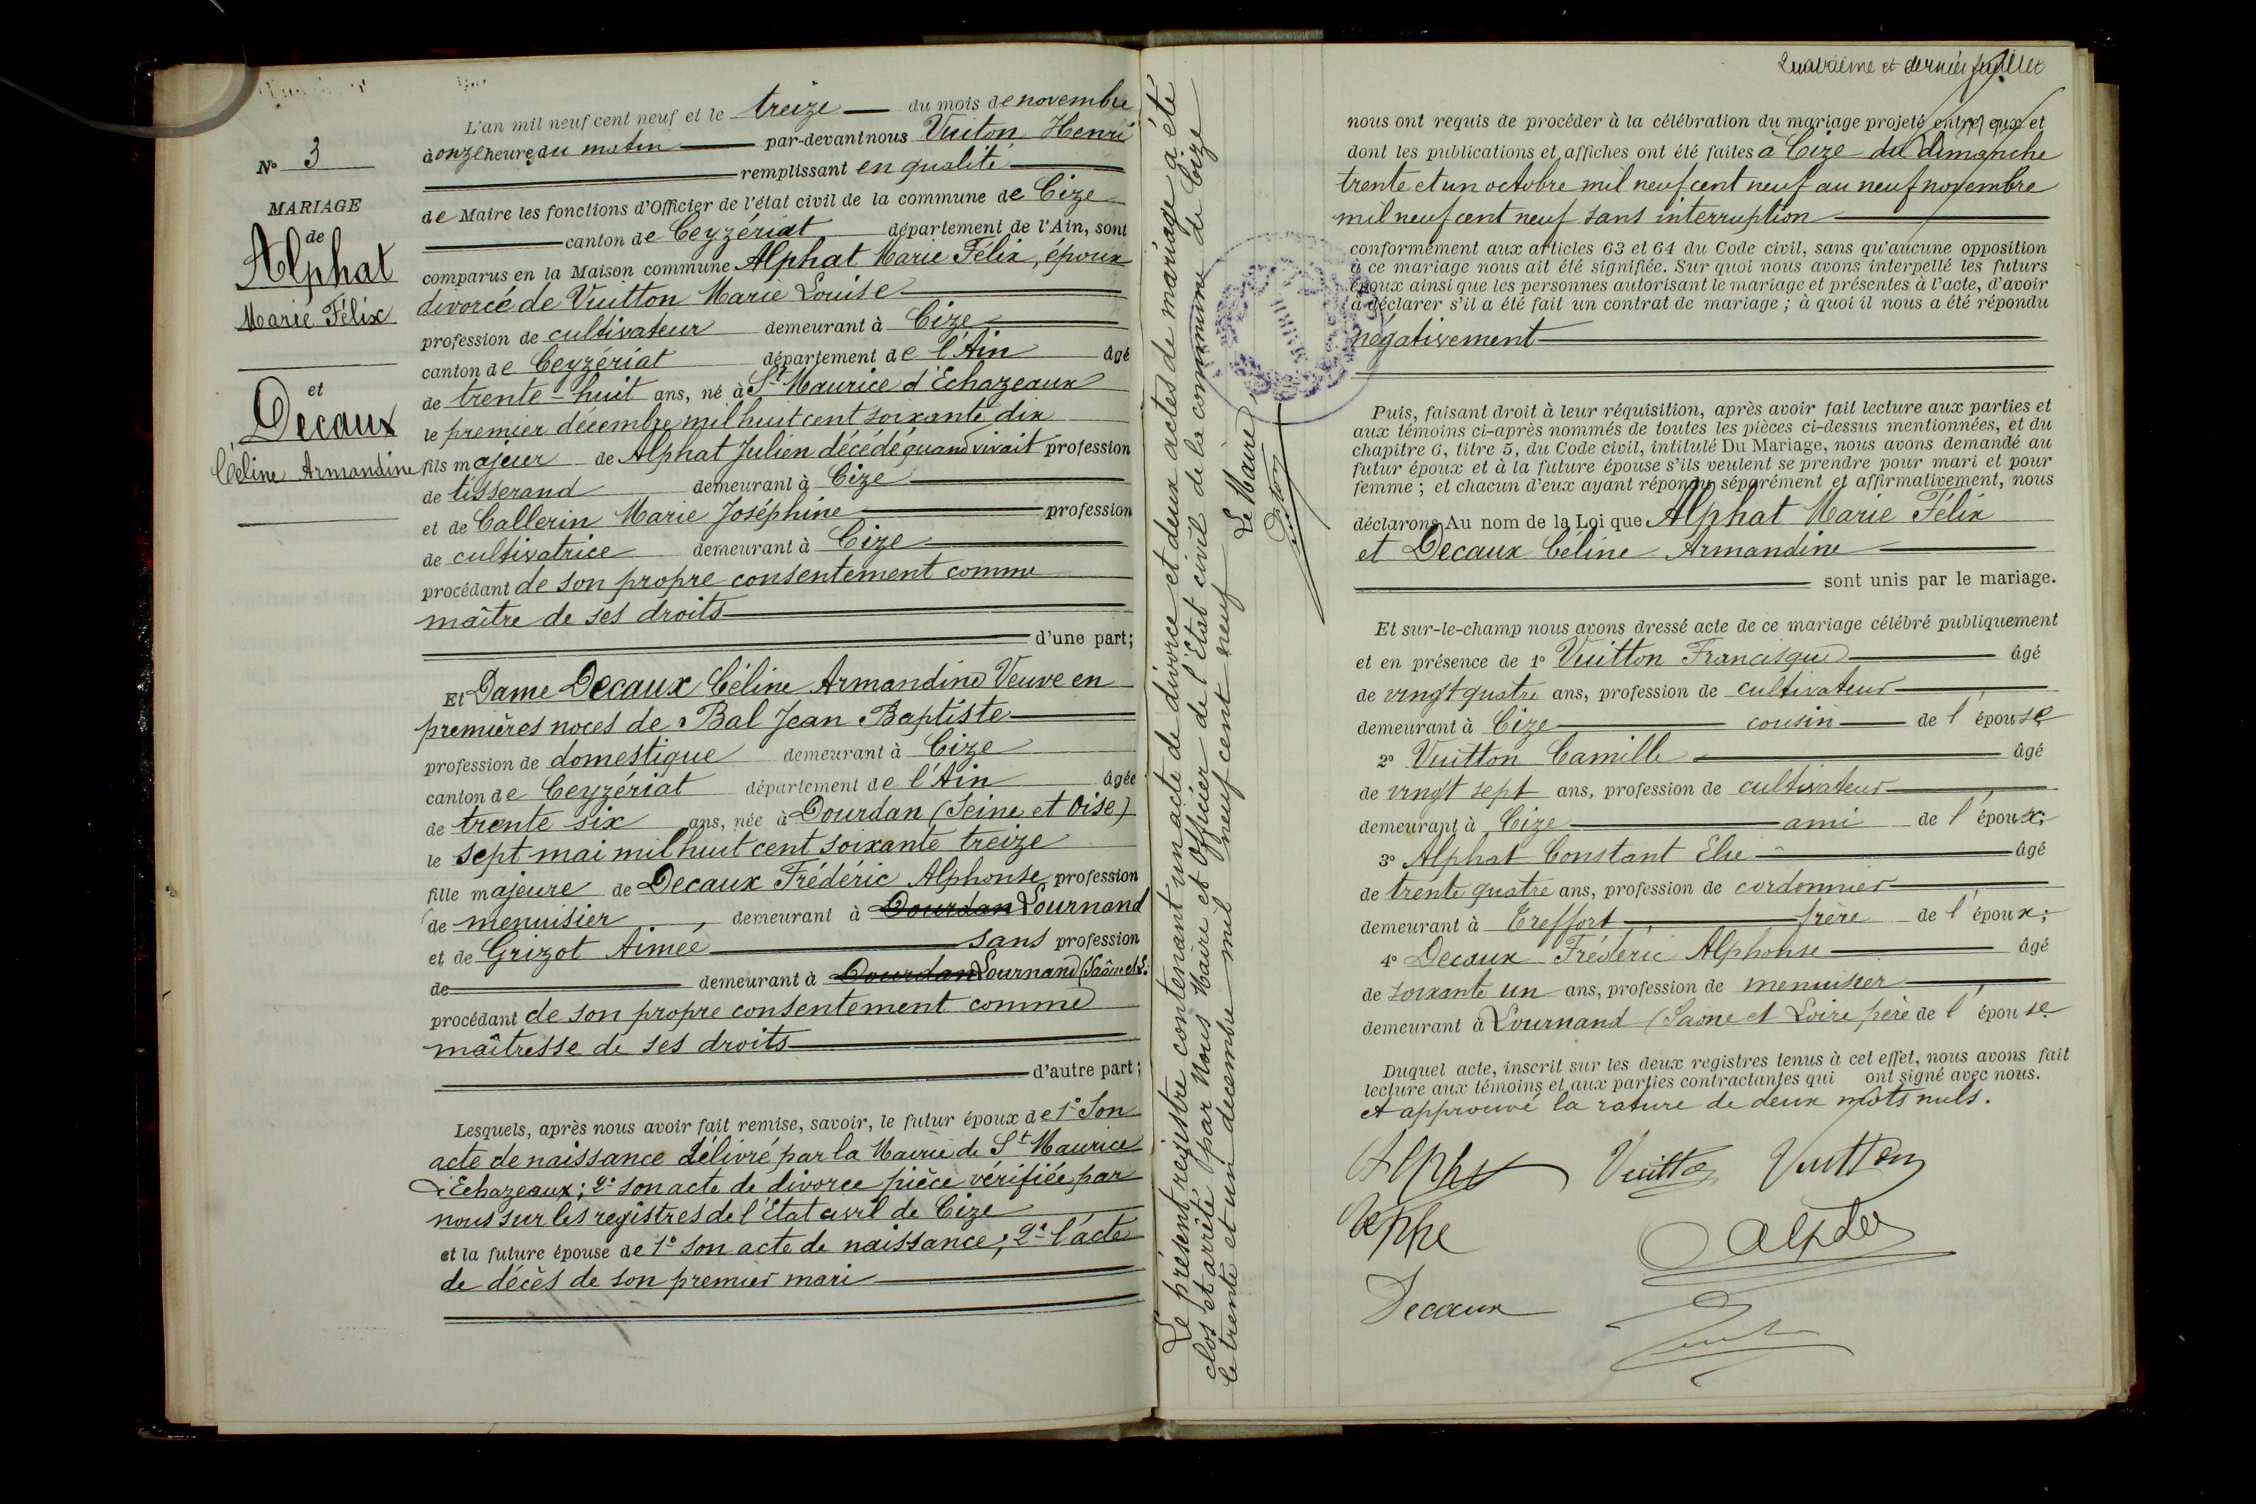 N° 3
MARIAGE
de
Alphat
Marie Félix
et
Decaux
Céline Armandine
L'an mil neuf cent neuf et le treize du mois de novembre
à onze heures du matin par-devant nous Vuiton Henri
remplissant en qualité
de Maire les fonctions d'Officier de l'état civil de la commune de Cize
canton de Ceyzériat département de l'Ain, sont
comparus en la Maison commune Alphat Marie Félix, époux
divorcé de Vuitton Marie Louise
profession de cultivateur demeurant à Cize
canton de Ceyzériat département de l'Ain âgé
de trente-huit ans, né à St Maurice d'Echazeaux
le premier décembre mil huit cent soixante dix
fils majeur de Alphat Julien décédé quand vivait profession
de tisserand demeurant à Cize
et de Callerin Marie Joséphine profession
de cultivatrice demeurant à Cize
procédant de son propre consentement comme
maître de ses droits
d'une part;
Et Dame Decaux Céline Armandine Veuve en
premières noces de Bal Jean Baptiste
profession de domestique demeurant à Cize
canton de Ceyzériat département de l'Ain âgée
de trente six ans, née à Dourdan (Seine et Oise)
le sept mai mil huit cent soixante treize
fille majeure de Decaux Frédéric Alphonse profession
de menuisier demeurant à Dourdan Lournand
et de Grizot Aimée sans profession
de demeurant à Dourdan Lournand (Saône et L.
procédant de son propre consentement comme
maîtresse de ses droits
d'autre part;
Lesquels, après nous avoir fait remise, savoir, le futur époux de 1° Son
acte de naissance délivré par la Mairie de St Maurice
d'Echazeaux; 2° son acte de divorce pièce vérifiée par
nous sur les registres de l'Etat civil de Cize
et la future épouse de 1° son acte de naissance; 2° l'acte
de décès de son premier mari
Le présent registre contenant un acte de divorce et deux actes de mariage a été
clos et arrêté par Nous Maire et Officier de l'Etat civil de la commune de Cize
le trente et un décembre mil neuf cent neuf
Le Maire
MAIRIE
Quatrième et dernier feuillet
nous ont requis de procéder à la célébration du mariage projeté entre eux et
dont les publications et affiches ont été faites à Cize du dimanche
trente et un octobre mil neuf cent neuf au neuf novembre
mil neuf cent neuf sans interruption
conformément aux articles 63 et 64 du Code civil, sans qu'aucune opposition
à ce mariage nous ait été signifiée. Sur quoi nous avons interpellé les futurs
époux ainsi que les personnes autorisant le mariage et présentes à l'acte, d'avoir
à déclarer s'il a été fait un contrat de mariage ; à quoi il nous a été répondu
négativement
Puis, faisant droit à leur réquisition, après avoir fait lecture aux parties et
aux témoins ci-après nommés de toutes les pièces ci-dessus mentionnées, et du
chapitre 6, titre 5, du Code civil, intitulé Du Mariage, nous avons demandé au
futur époux et à la future épouse s'ils veulent se prendre pour mari et pour
femme ; et chacun d'eux ayant répondu séparément et affirmativement, nous
déclarons Au nom de la Loi que Alphat Marie Félix
et Decaux Céline Armandine
sont unis par le mariage.
Et sur-le-champ nous avons dressé acte de ce mariage célébré publiquement
et en présence de 1° Vuitton Francisque âgé
de vingt quatre ans, profession de cultivateur
demeurant à Cize cousin de l'épouse
2° Vuitton Camille âgé
de vingt sept ans, profession de cultivateur
demeurant à Cize ami de l'époux;
3° Alphat Constant Elie âgé
de trente quatre ans, profession de cordonnier
demeurant à Treffort frère de l'époux;
4° Decaux Frédéric Alphonse âgé
de soixante un ans, profession de menuisier
demeurant à Lournand (Saone et Loire père de l'épouse
Duquel acte, inscrit sur les deux registres tenus à cet effet, nous avons fait
lecture aux témoins et aux parties contractantes qui ont signé avec nous.
et approuvé la rature de deux mots nuls.
Vuitton Vuitton
Decaux